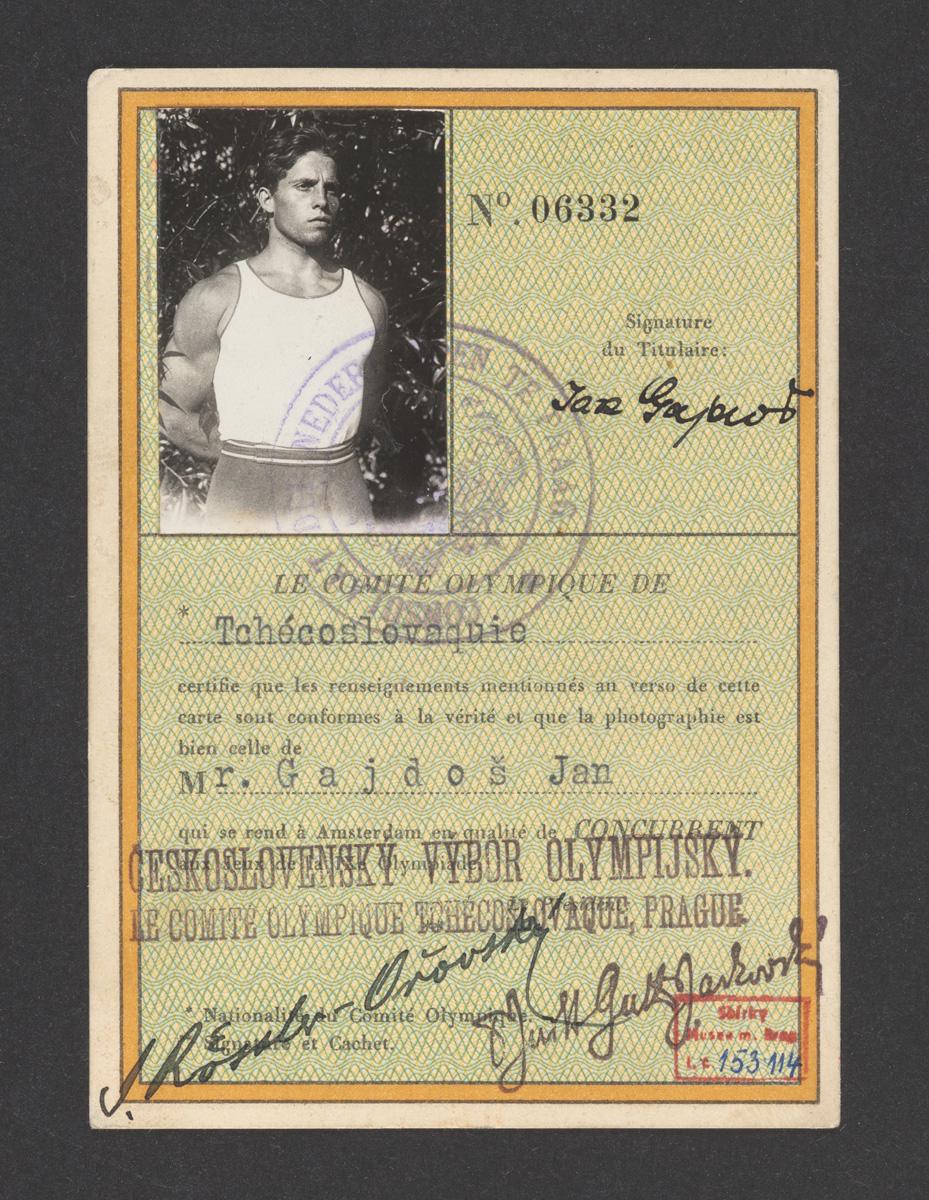 Nº. 06332
Signature
du Titulaire:
Jan Gajdoš
LE COMITÉ OLYMPIQUE DE
* Tchécoslovaquie
certifie que les renseignements mentionnés au verso de cette
carte sont conformes à la vérité et que la photographie est
bien celle de
Mr. Gajdoš Jan
qui se rend à Amsterdam en qualité de CONCURRENT
aux Jeux de la IXe Olympiade.
ČESKOSLOVENSKÝ VÝBOR OLYMPIJSKÝ.
Le Président
LE COMITÉ OLYMPIQUE TCHÉCOSLOVAQUE, PRAGUE.
J. Rössler-Ořovský
* Nationalité du Comité Olympique.
Signature et Cachet.
Sbírky
Musea m. Brna
i. č. 153 114